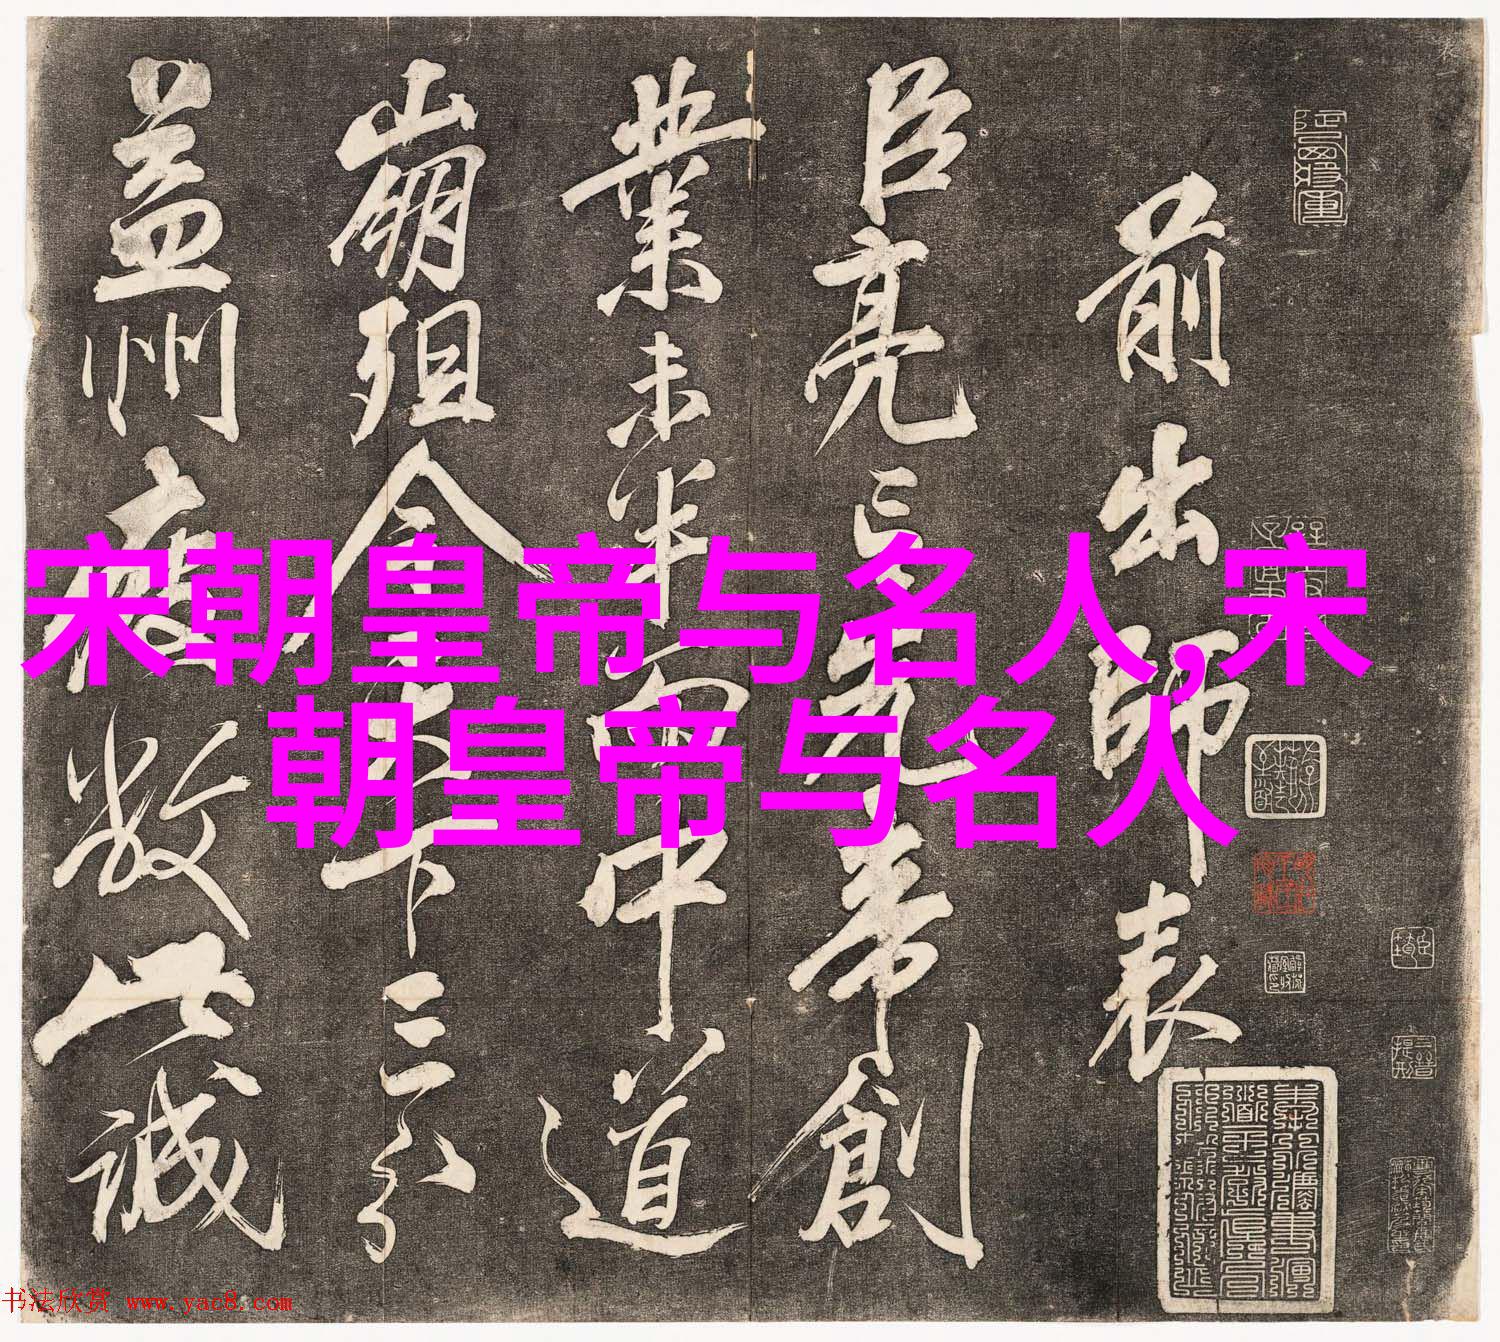 前出师表
臣亮言先帝創
業未半而中道
崩殂今天下三分
益州疲敝此誠
宋朝皇帝与名人,宋
朝皇帝与名人
书法欣赏 www.yac8.com